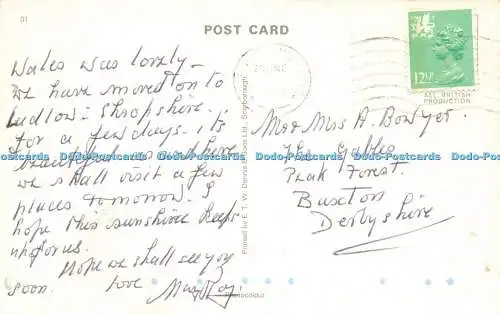 01
POST CARD
Wales was lovely –
we have moved on to
Ludlow – Shropshire –
for a few days. its
beautiful round here
we shall visit a few
places tomorrow. I
hope this sunshine keeps
up for us.
Hope we shall see you
soon. love
Printed by E. T. W. Dennis & Sons Ltd., Scarborough
Photocolour
12½P
ALL BRITISH
PRODUCTION
Mr & Mrs A. Bowyer.
The Gables
Peak Forest.
Buxton
Derbyshire
Dodo-Postcards Dodo-Postcards Dodo-Postcards Dodo-Postcards Dodo-Postcards Dodo-Postcards